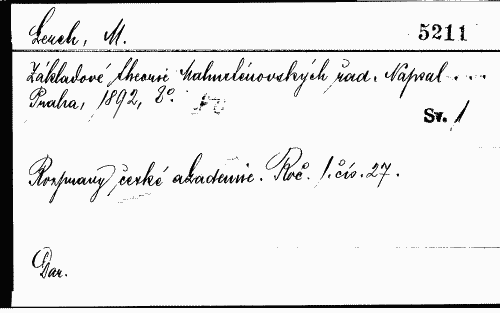 Lerch, M.
5211
Základové theorie Malmsténovských řad. Napsal . . .
Praha, 1892, 8°.
Sv. 1
Rozpravy české akademie. Roč. 1. čís. 27.
Dar.